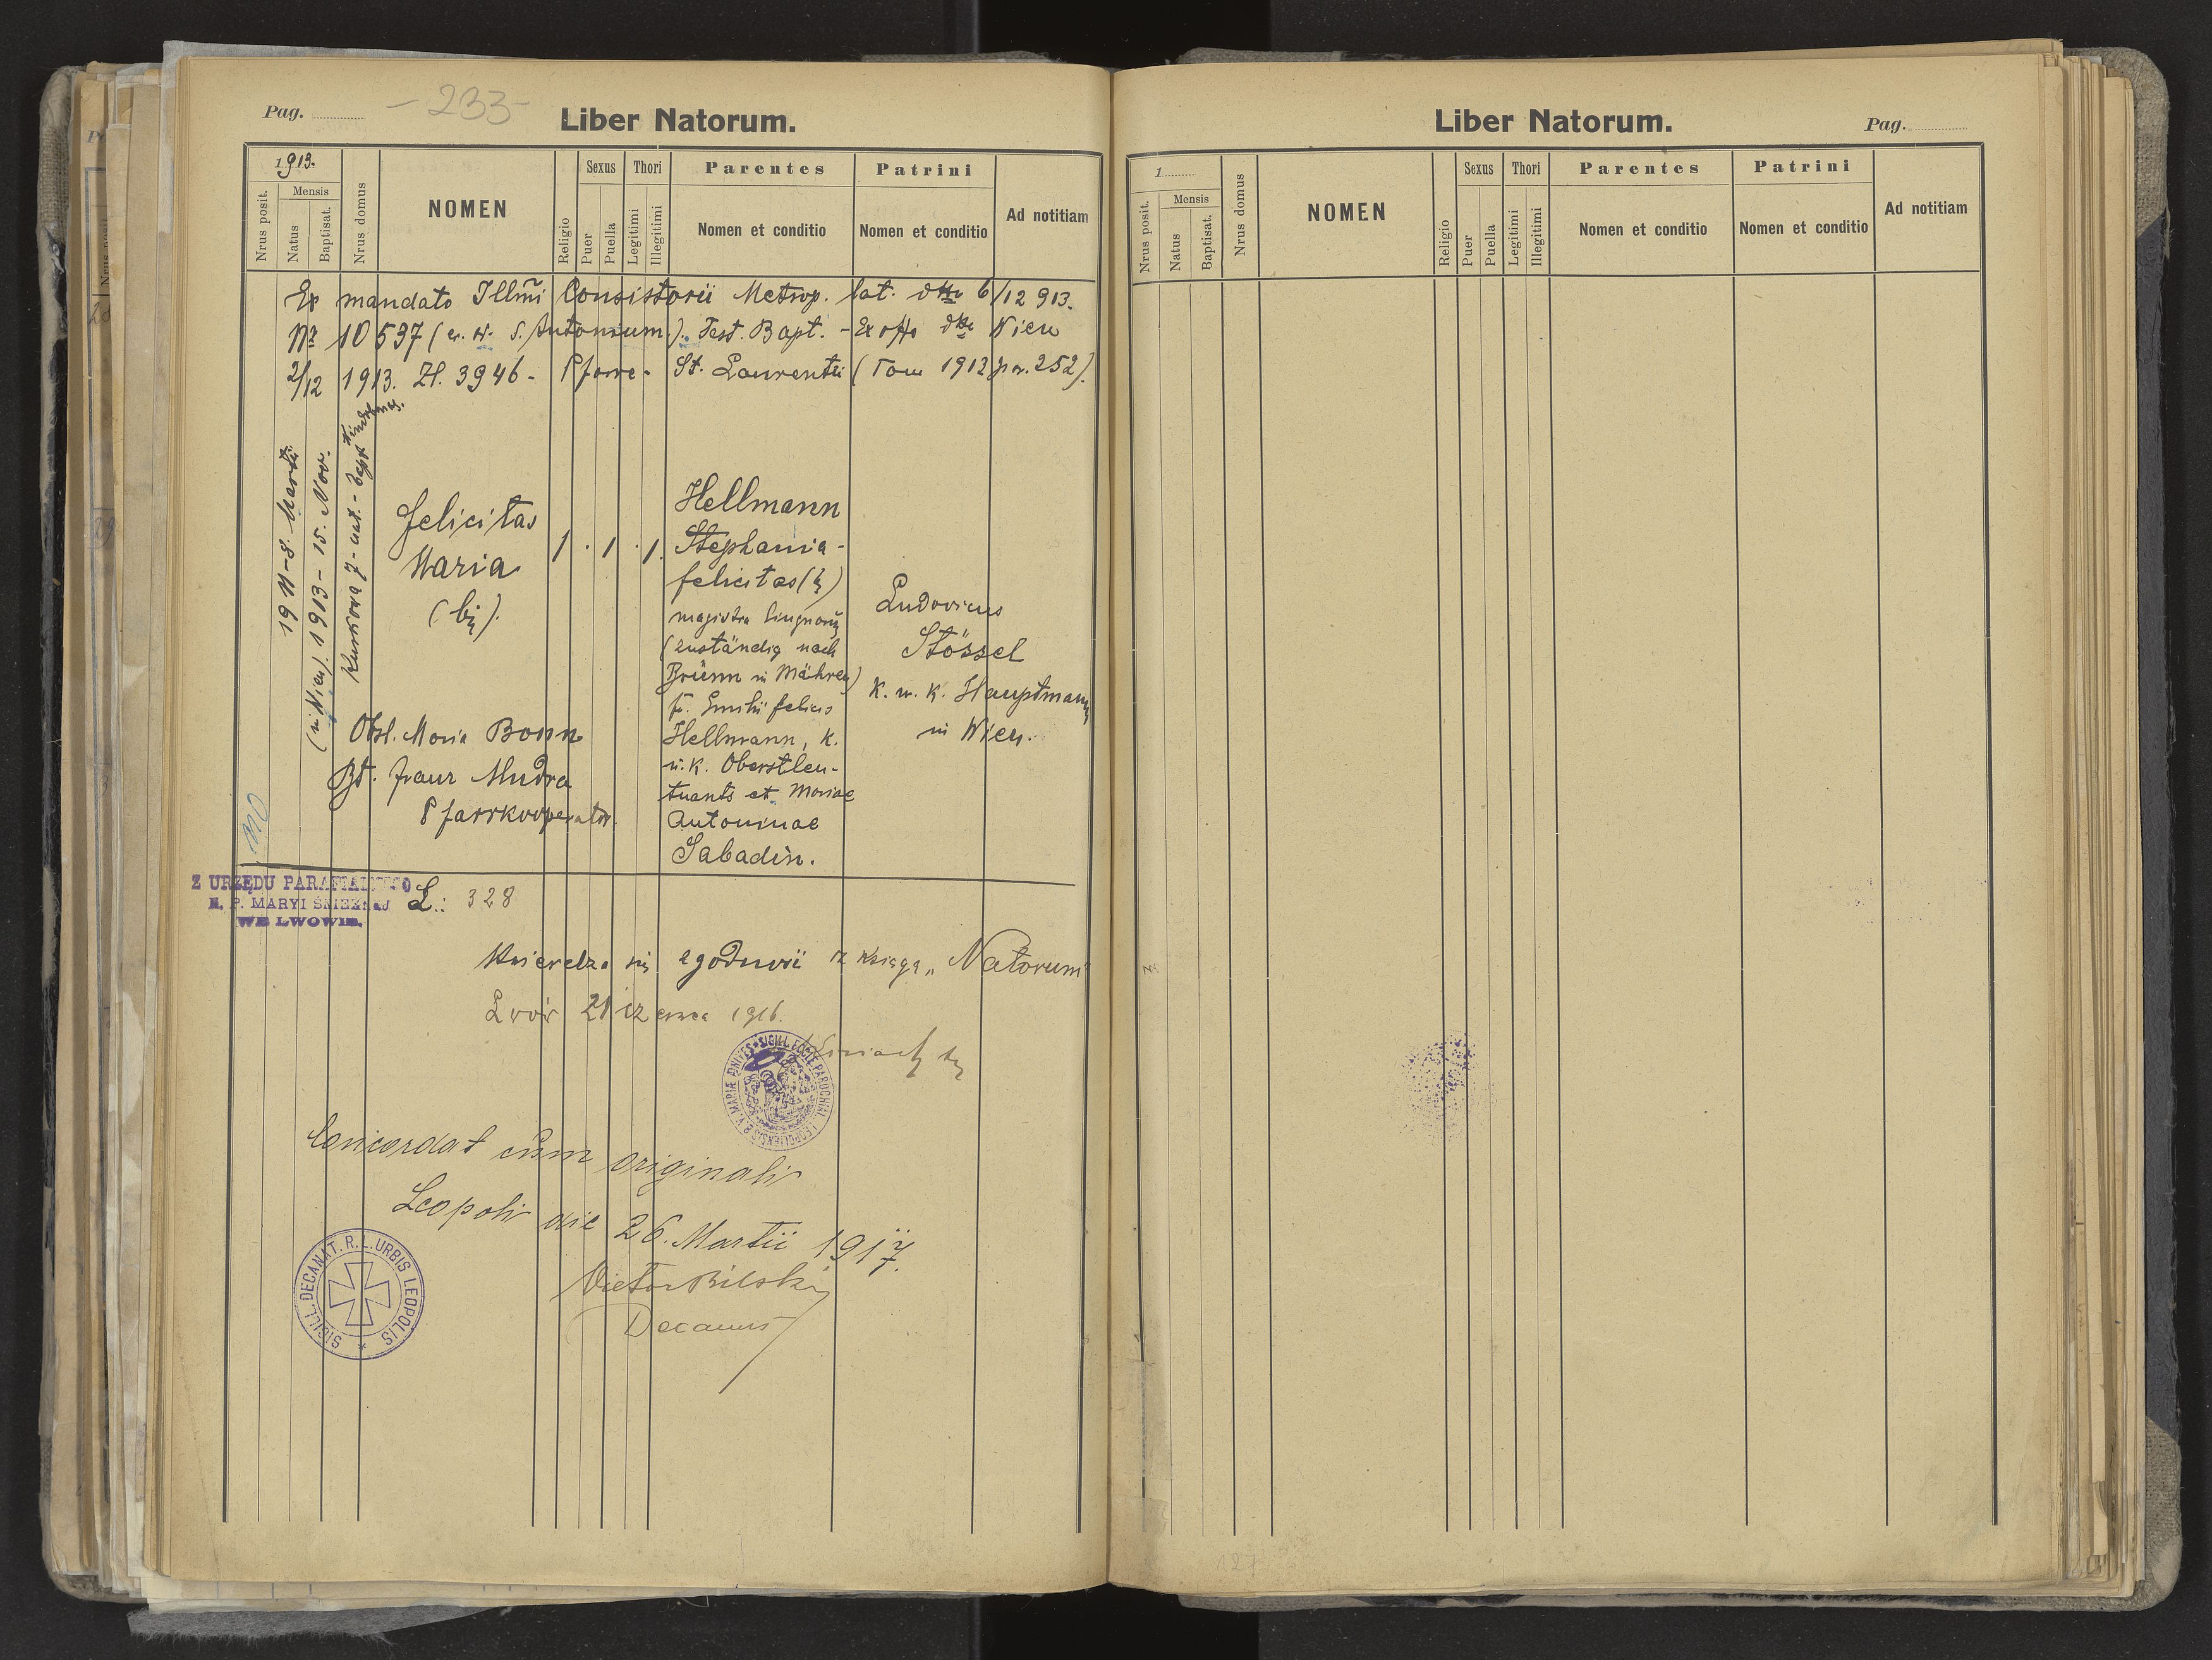 Pag.
- 233 -
Liber Natorum.
1913.
Nrus posit.
Mensis
Natus
Baptisat.
Nrus domus
NOMEN
Religio
Sexus
Puer
Puella
Thori
Legitimi
Illegitimi
Parentes
Nomen et conditio
Patrini
Nomen et conditio
Ad notitiam
Ex mandato Illmi Consistorii Metrop. lat. dtto 6/12 913.
Nr 10537 ( S. Antonium). Test. Bapt. - Ex offo dto Wien
2/12 1913. Zl. 3946 - Pfarre - St. Laurentii (Tom 1913 pag. 252).
1911 - 8. Martii
(in Wien) 1913 - 15. Nov.
Kurkowa 7 - nat. - bapt
Felicitas
Maria
1 . 1 . 1.
Hellmann
Stephania -
Felicitas
magistra linguarum
(zuständig nach
Brünn in Mähren)
fil. Emilii Felicis
Hellmann, k.
u. k. Oberstleu-
tnants et Mariae
Antoninae
Sabadin.
Ludovicus
Stössel
K. u. K. Hauptmann
in Wien.
Obst. Maria Bonn
Bt. Franz Mudra
Pfarrkooperator.
Z URZĘDU PARAFIALNEGO
N. P. MARYI ŚNIEŻNEJ
WE LWOWIE.
L.: 328
Stwierdza się zgodność z księgą „Natorum"
Lwów 21 czerwca 1916.
SIGILL. ECCLE. PAROCHIAL. LEOPOLIENSIS B. V. MARIÆ AD NIVES
Concordat cum originali
Leopoli die 26. Martii 1917.
Victor Bilski
Decanus
SIGILL. DECANAT. R. L. URBIS LEOPOLIS
Liber Natorum.
Pag.
1
Nrus posit.
Mensis
Natus
Baptisat.
Nrus domus
NOMEN
Religio
Sexus
Puer
Puella
Thori
Legitimi
Illegitimi
Parentes
Nomen et conditio
Patrini
Nomen et conditio
Ad notitiam
127